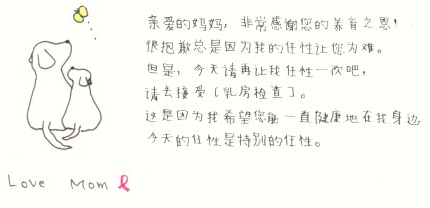 亲爱的妈妈，非常感谢您的养育之恩，
很抱歉总是因为我的任性让您为难。
但是，今天请再让我任性一次吧，
请去接受［乳房检查］。
这是因为我希望您能一直健康地在我身边
今天的任性是特别的任性。
Love Mom